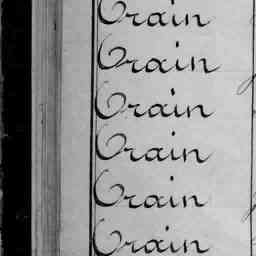 Crain
Crain
Crain
Crain
Crain
Crain